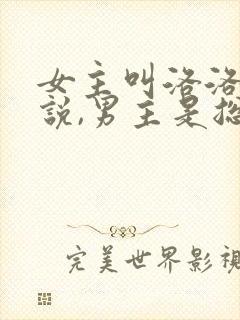 女主叫洛洛
說,男主是
完美世界影視